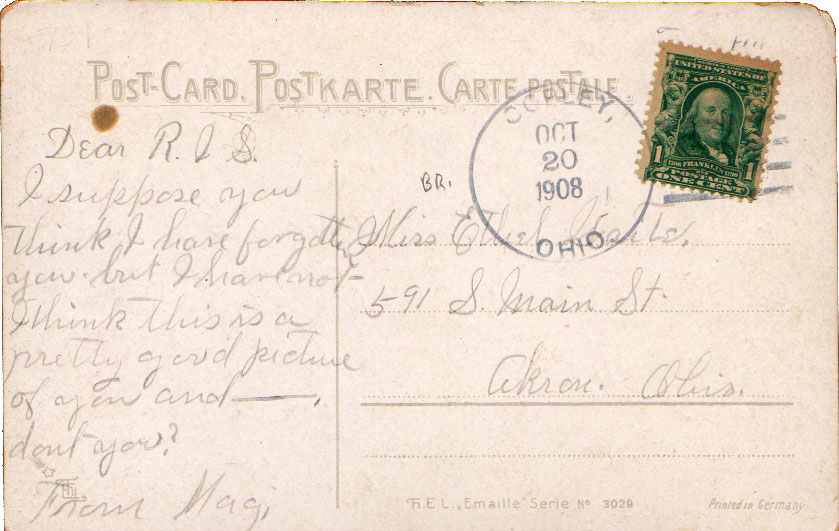 POST-CARD. POSTKARTE. CARTE POSTALE.
UNITED STATES OF
AMERICA
1706 FRANKLIN 1790
POSTAGE
1 ONE CENT 1
COPLEY,
OCT
20
1908
OHIO
BR.
Dear R. I S.
I suppose you
think I have forgotten
you but I have not
I think this is a
pretty good picture
of you and ——.
dont you?
From Mag.
Miss Ethel
591 S. Main St.
Akron. Ohio.
H.E.L. „Emaille" Serie No 3029
Printed in Germany